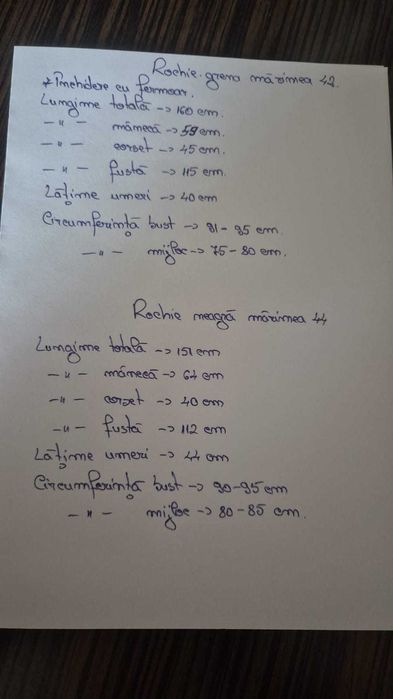 Rochie grena mărimea 42.
* Închidere cu fermoar.
Lungime totală -> 160 cm.
-"- mânecă -> 59 cm.
-"- corset -> 45 cm.
-"- fustă -> 115 cm.
Lățime umeri -> 40 cm
Circumferință bust -> 91-95 cm.
-"- mijloc -> 75-80 cm.
Rochie neagră mărimea 44
Lungime totală -> 151 cm
-"- mânecă -> 64 cm
-"- corset -> 40 cm
-"- fustă -> 112 cm
Lățime umeri -> 44 cm
Circumferință bust -> 90-95 cm
-"- mijloc -> 80-85 cm.